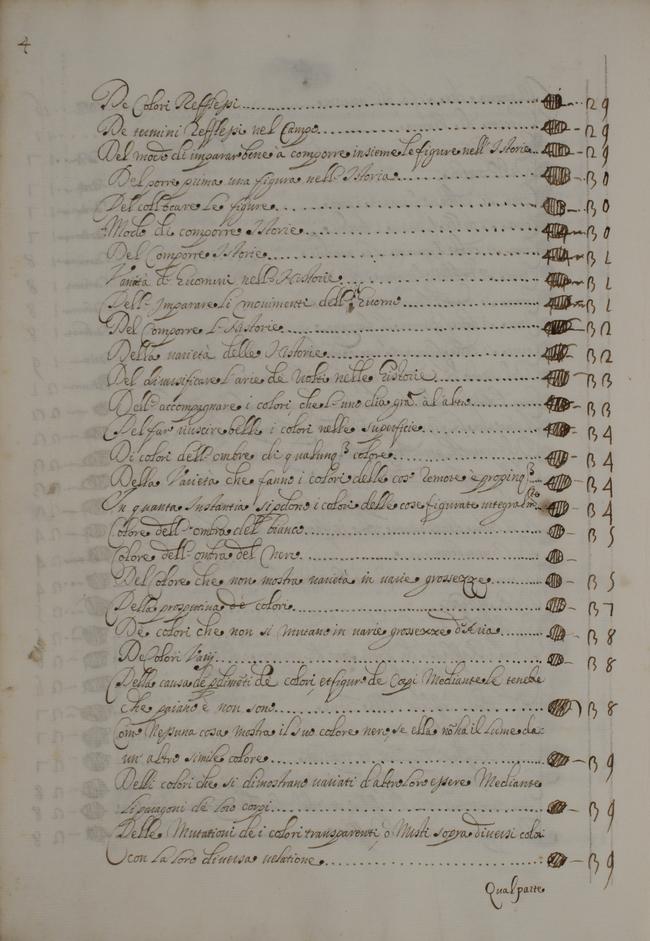 4
De Colori Reflessi ... 29
De termini Reflessi nel Campo ... 29
Del modo di imparar bene à comporre insieme le figure nell' Istorie ... 29
Del porre prima una figura nell' Istoria ... 30
Del collocare Le figure ... 30
Modo di comporre Istorie ... 30
Del Comporre Istorie ... 31
Varietà d' Huomini nell' Historie ... 31
Dell' Imparare li movimenti dell' huomo ... 31
Del Comporre L' Historie ... 32
Della varietà delle Historie ... 32
Del diversificare l'arie de Volti nelle historie ... 33
Dell' accompagnare i colori, che l' uno dia gra. al altro ... 33
Del far' riuscire belle i colori nelle superficie ... 34
Di colori dell' ombre di qualunq3 colore ... 34
Della Varietà che fanno i colori delle cose remote è propinq3 ... 34
In quanta Distantia si pdono i colori delle cose figurate integram.te ... 34
Colore dell' ombra del bianco ... 35
Colore dell' ombra del Nero ...
Del Colore che non mostra varietà in varie grossezze ... 35
Della prospettiva de colori ... 37
De colori che non si mutano in varie grossezze d'Aria ... 38
De Colori Varij ... 38
Della causa de pdimēti de colori, et figur. de Corpi Mediante le tenebre
che paiano è non sono ... 38
Com. Nessuna cosa mostra il suo colore nero, se ella nō ha il Lume da:
un' altro simile colore ... 39
Delli colori che si dimostrano variati d'altro loro essere Mediante
li paragoni de loro corpi ... 39
Delle Mutationi de i colori transparenti, ò Misti sopra diversi colo:
con La loro diversa relatione ... 39
Qual parte